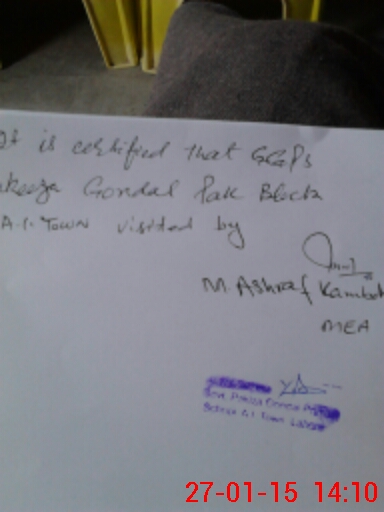 It is certified that GGPS
akeeza Gondal Park Block
A.I. Town visited by
M. Ashraf Kamboh
MEA
Govt. Pakiza Gondal
School A.I. Town Lahore
27-01-15 14:10